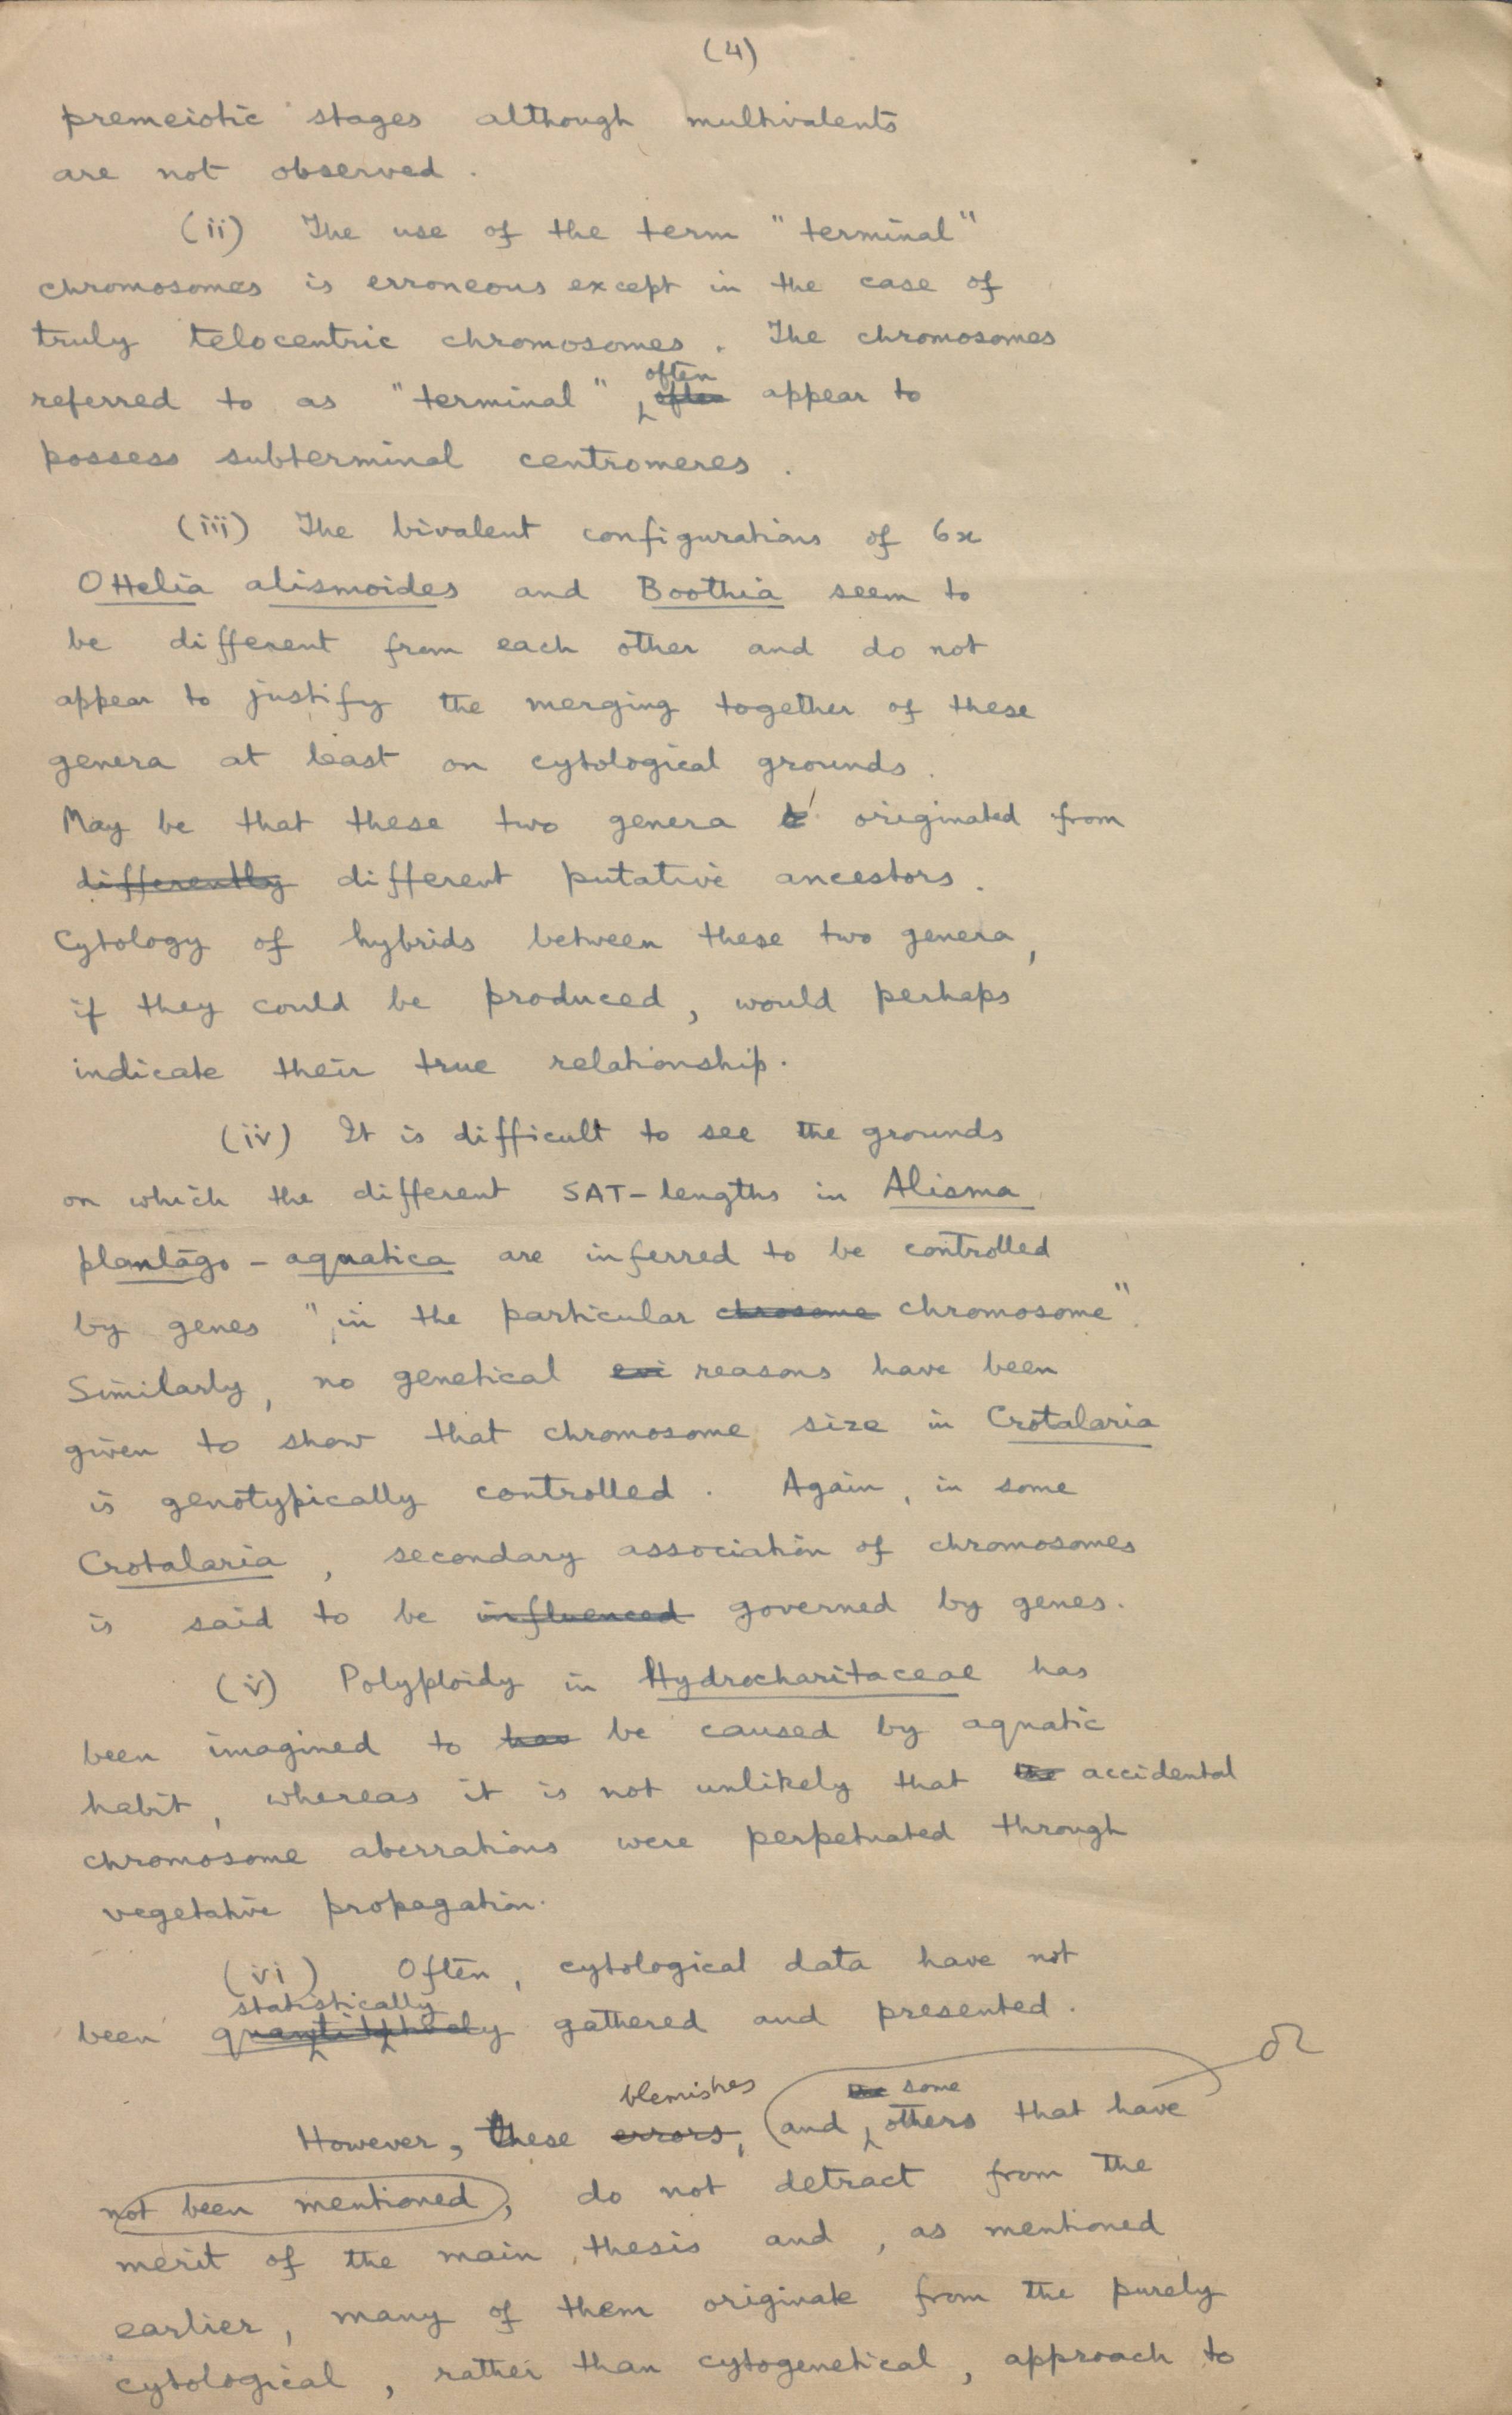 (4)
premeiotic stages although multivalents
are not observed.
(ii) The use of the term "terminal"
chromosomes is erroneous except in the case of
truly telocentric chromosomes. The chromosomes
often
referred to as "terminal" often appear to
possess subterminal centromeres.
(iii) The bivalent configurations of 6x
Ottelia alismoides and Boothia seem to
be different from each other and do not
appear to justify the merging together of these
genera at least on cytological grounds.
May be that these two genera originated from
differently different putative ancestors.
Cytology of hybrids between these two genera,
if they could be produced, would perhaps
indicate their true relationship.
(iv) It is difficult to see the grounds
on which the different SAT-lengths in Alisma
plantago-aquatica are inferred to be controlled
by genes "in the particular chrosome chromosome".
Similarly, no genetical evi reasons have been
given to show that chromosome size in Crotalaria
is genotypically controlled. Again, in some
Crotalaria, secondary association of chromosomes
is said to be influenced governed by genes.
(v) Polyploidy in Hydrocharitaceae has
been imagined to has be caused by aquatic
habit, whereas it is not unlikely that the accidental
chromosome aberrations were perpetuated through
vegetative propagation.
(vi) Often, cytological data have not
statistically
been gathered and presented.
blemishes the some
However, these errors, (and others that have
not been mentioned), do not detract from the
merit of the main thesis and, as mentioned
earlier, many of them originate from the purely
cytological, rather than cytogenetical, approach to